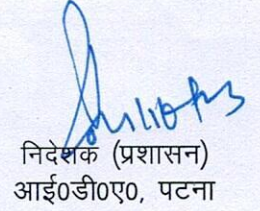 निदेशक (प्रशासन)
आई0डी0ए0, पटना